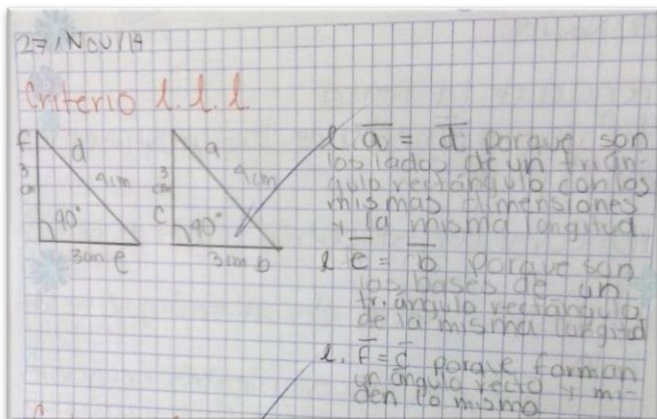 27/Nov/14
Criterio l.l.l.
f
d
3
cm
4cm
90°
3cm e
a
3
cm
4cm
c
90°
3cm b
l. a = d porque son
los lados de un trián-
gulo rectángulo con las
mismas dimensiones
y la misma longitud
l e = b porque son
las bases de un
triángulo rectángulo
de la misma longitud
l. f = c porque forman
un ángulo recto y mi-
den lo mismo